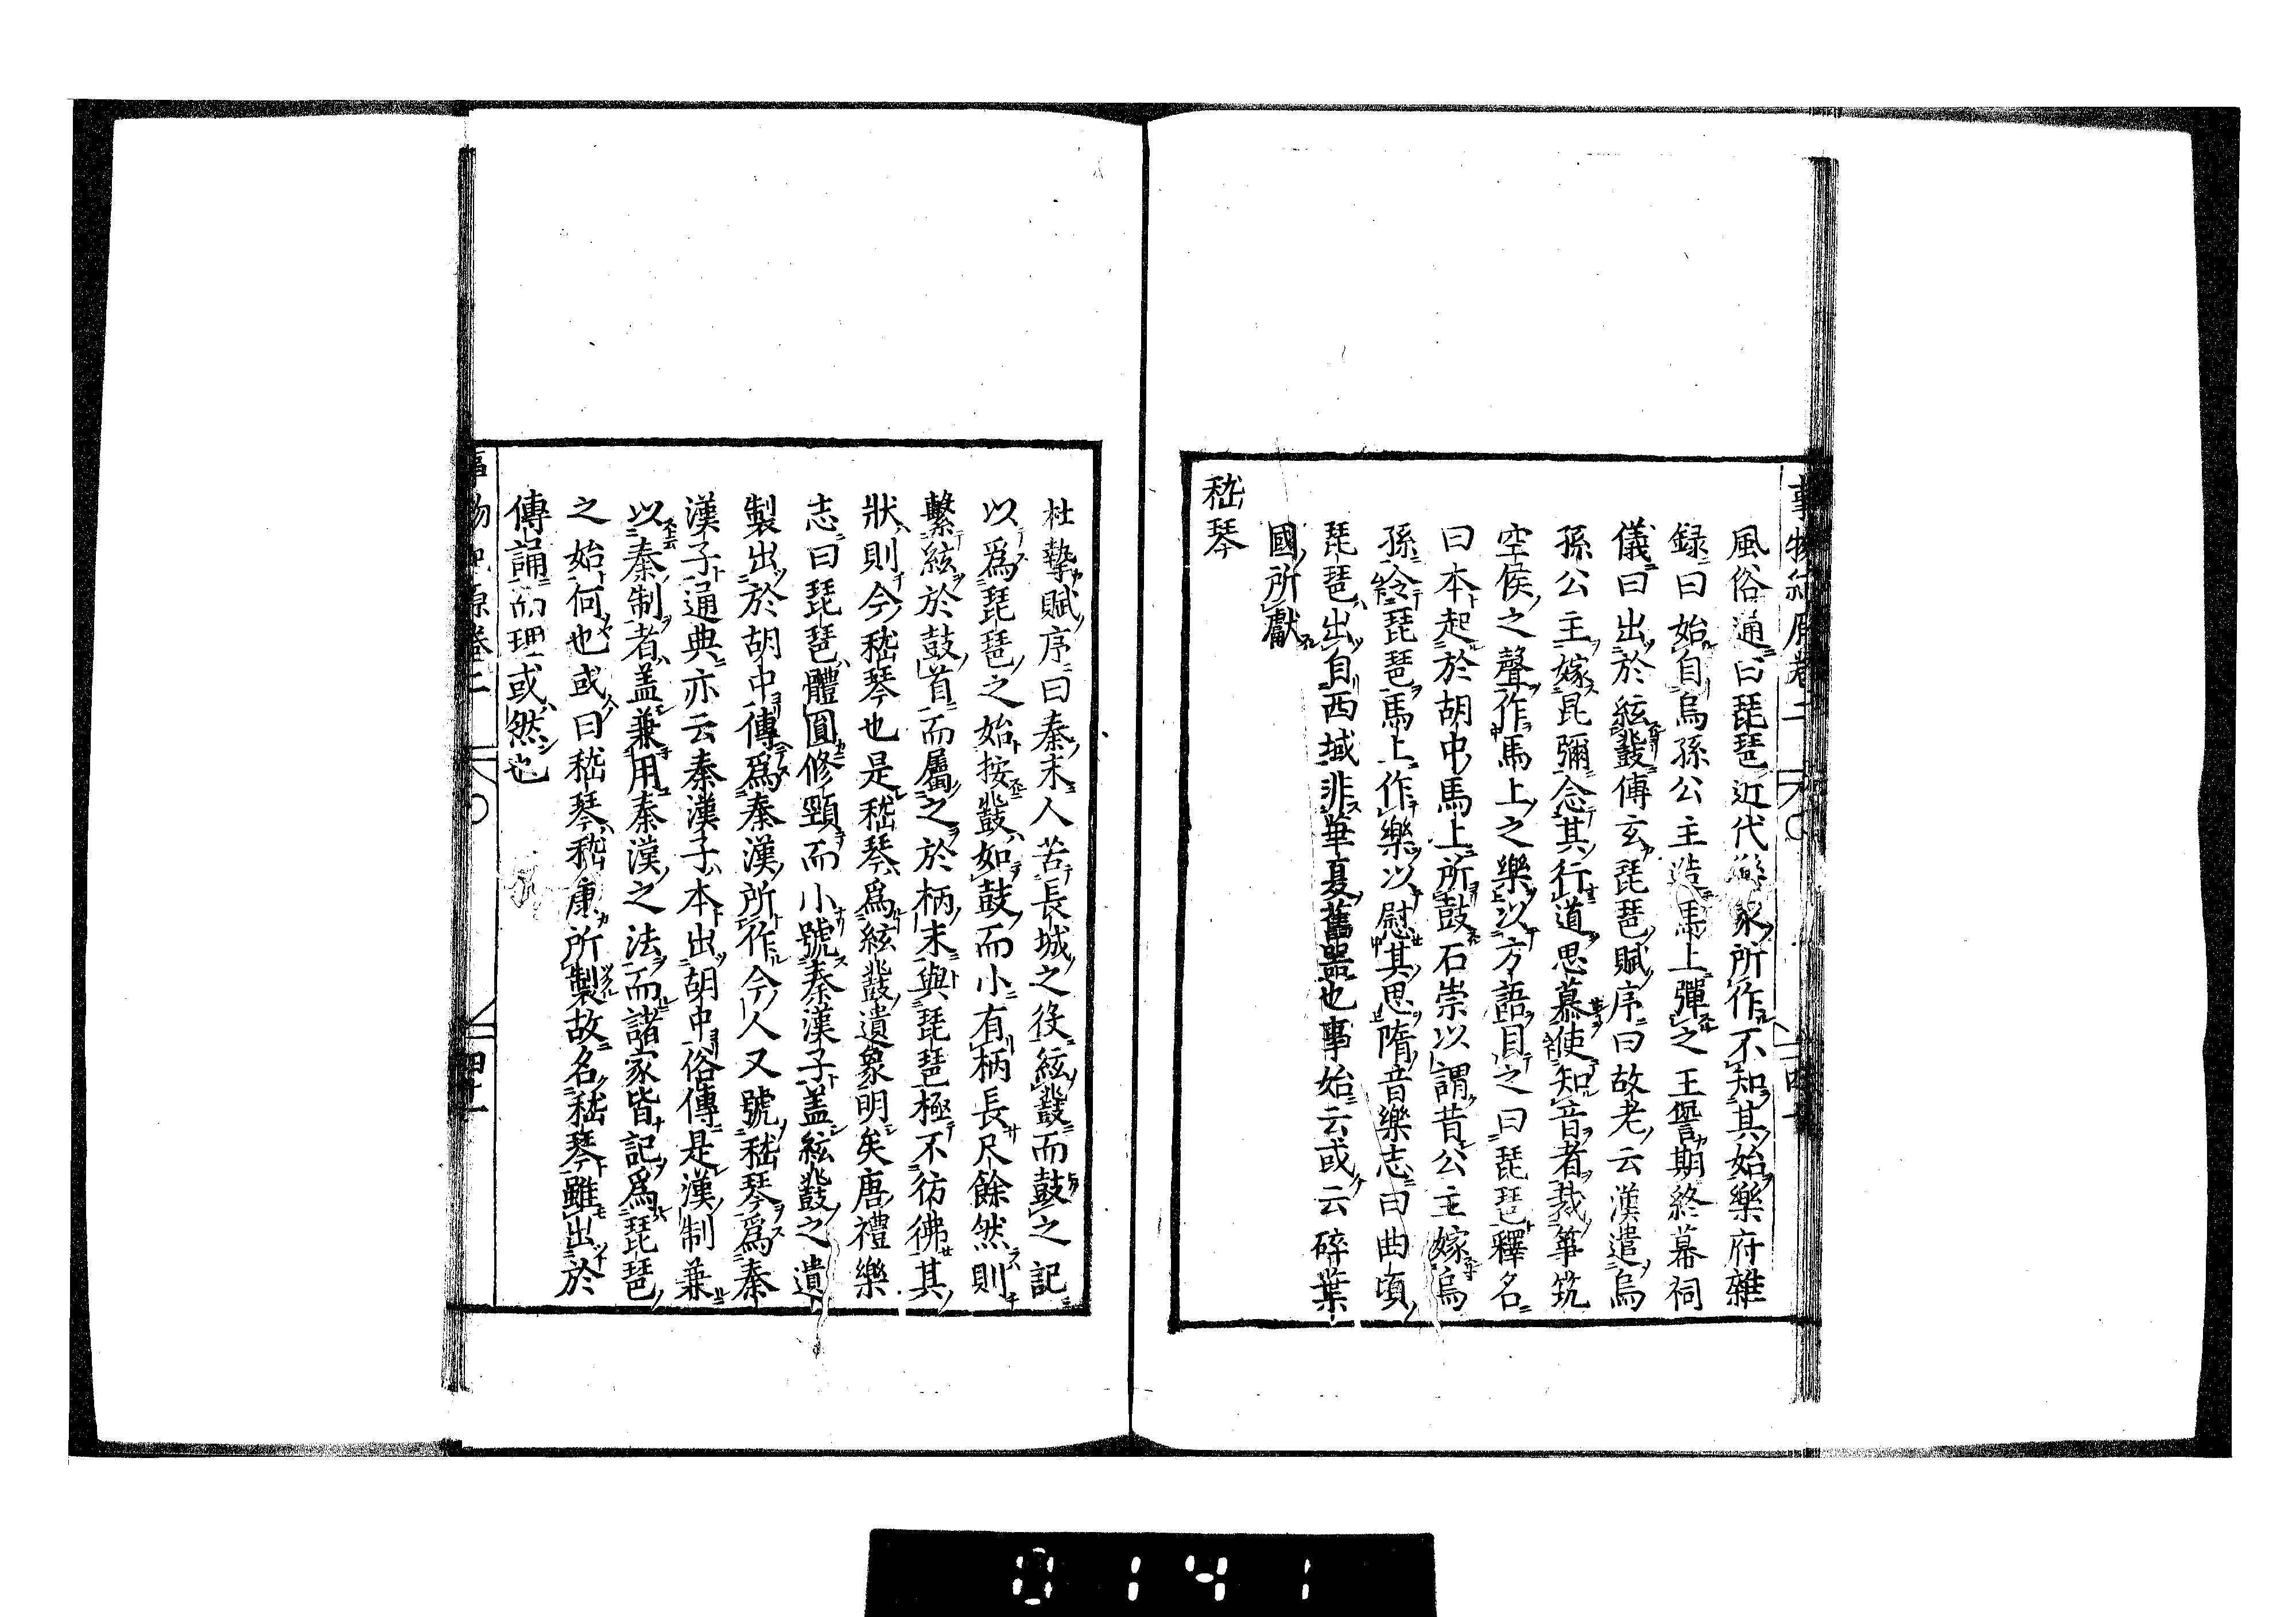 事物紀原卷二
風俗通曰琵琶近代樂家所作不知其始樂府雜
録曰始自烏孫公主造馬上彈之王譽期終幕祠
儀曰出於絃鼗傳玄琵琶賦序曰故老云漢遣烏
孫公主嫁昆彌念其行道思慕使知音者裁箏筑
空侯之聲作馬上之樂以方語目之曰琵琶釋名
曰本起於胡中馬上所鼓石崇以謂昔公主嫁烏
孫令琵琶馬上作樂以慰其思隋音樂志曰曲項
琵琶出自西域非華夏舊器也事始云或云碎葉
國所獻
嵇琴
杜摯賦序曰秦末人苦長城之役絃鼗而鼓之記
以爲琵琶之始按鼗如鼓而小有柄長尺餘然則
繫絃於鼓首而屬之於柄末與琵琶極不彷彿其
狀則今嵇琴也是嵇琴爲絃鼗遺象明矣唐禮樂
志曰琵琶體圓修頸而小號秦漢子盖絃鼗之遺
製出於胡中傳爲秦漢所作今人又號嵇琴爲秦
漢子通典亦云秦漢子本出胡中俗傳是漢制兼
以秦制者盖兼用秦漢之法而諸家皆記爲琵琶
之始何也或曰嵇琴嵇康所製故名嵇琴雖出於
傳誦而理或然也
事物紀原卷二
0141